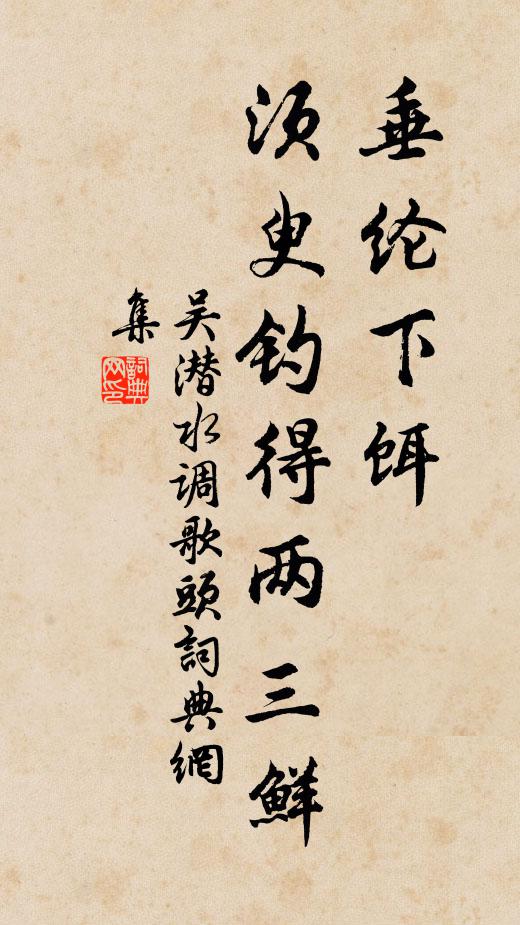 垂纶下饵
须叟钓得两三鲜
吴潜水调歌头詞典網
集
詞典网印